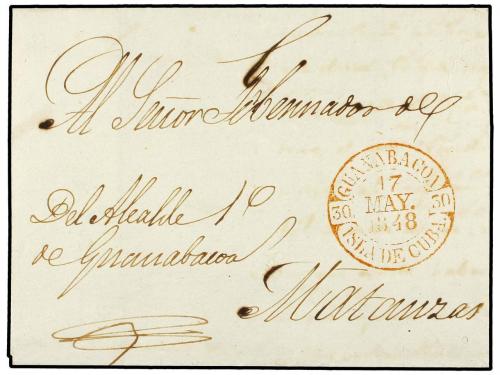 Al Señor Gobernador de
GUANABACOA
17
MAY.
1848
30 30
ISLA DE CUBA.
Del Alcalde 1º
de Guanabacoa
Matanzas